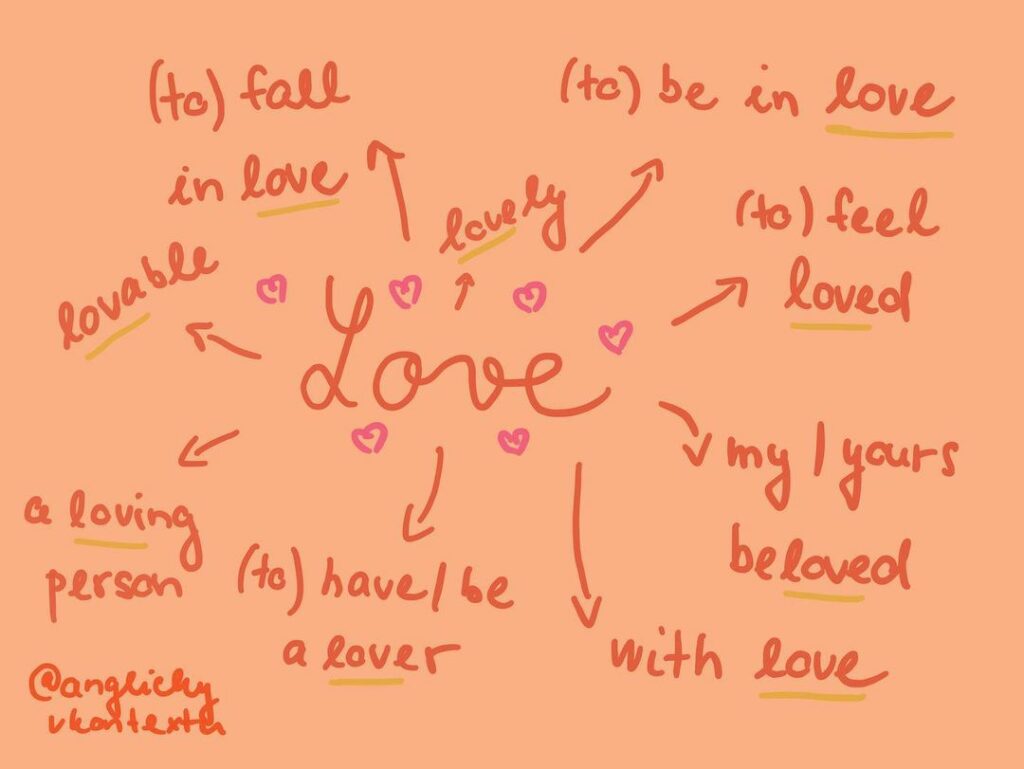 (to) fall
in love
(to) be in love
lovely
(to) feel
loved
lovable
Love
my / yours
beloved
a loving
person
(to) have / be
a lover
with love
@anglicky
vkontextu